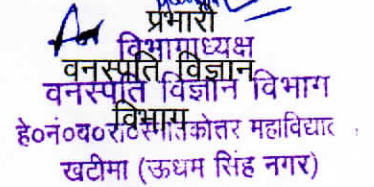 प्रभारी
विभागाध्यक्ष
वनस्पति विज्ञान
वनस्पति विज्ञान विभाग
विभाग
हे०नं०ब०रा०स्नातकोत्तर महाविद्यालय
खटीमा (ऊधम सिंह नगर)